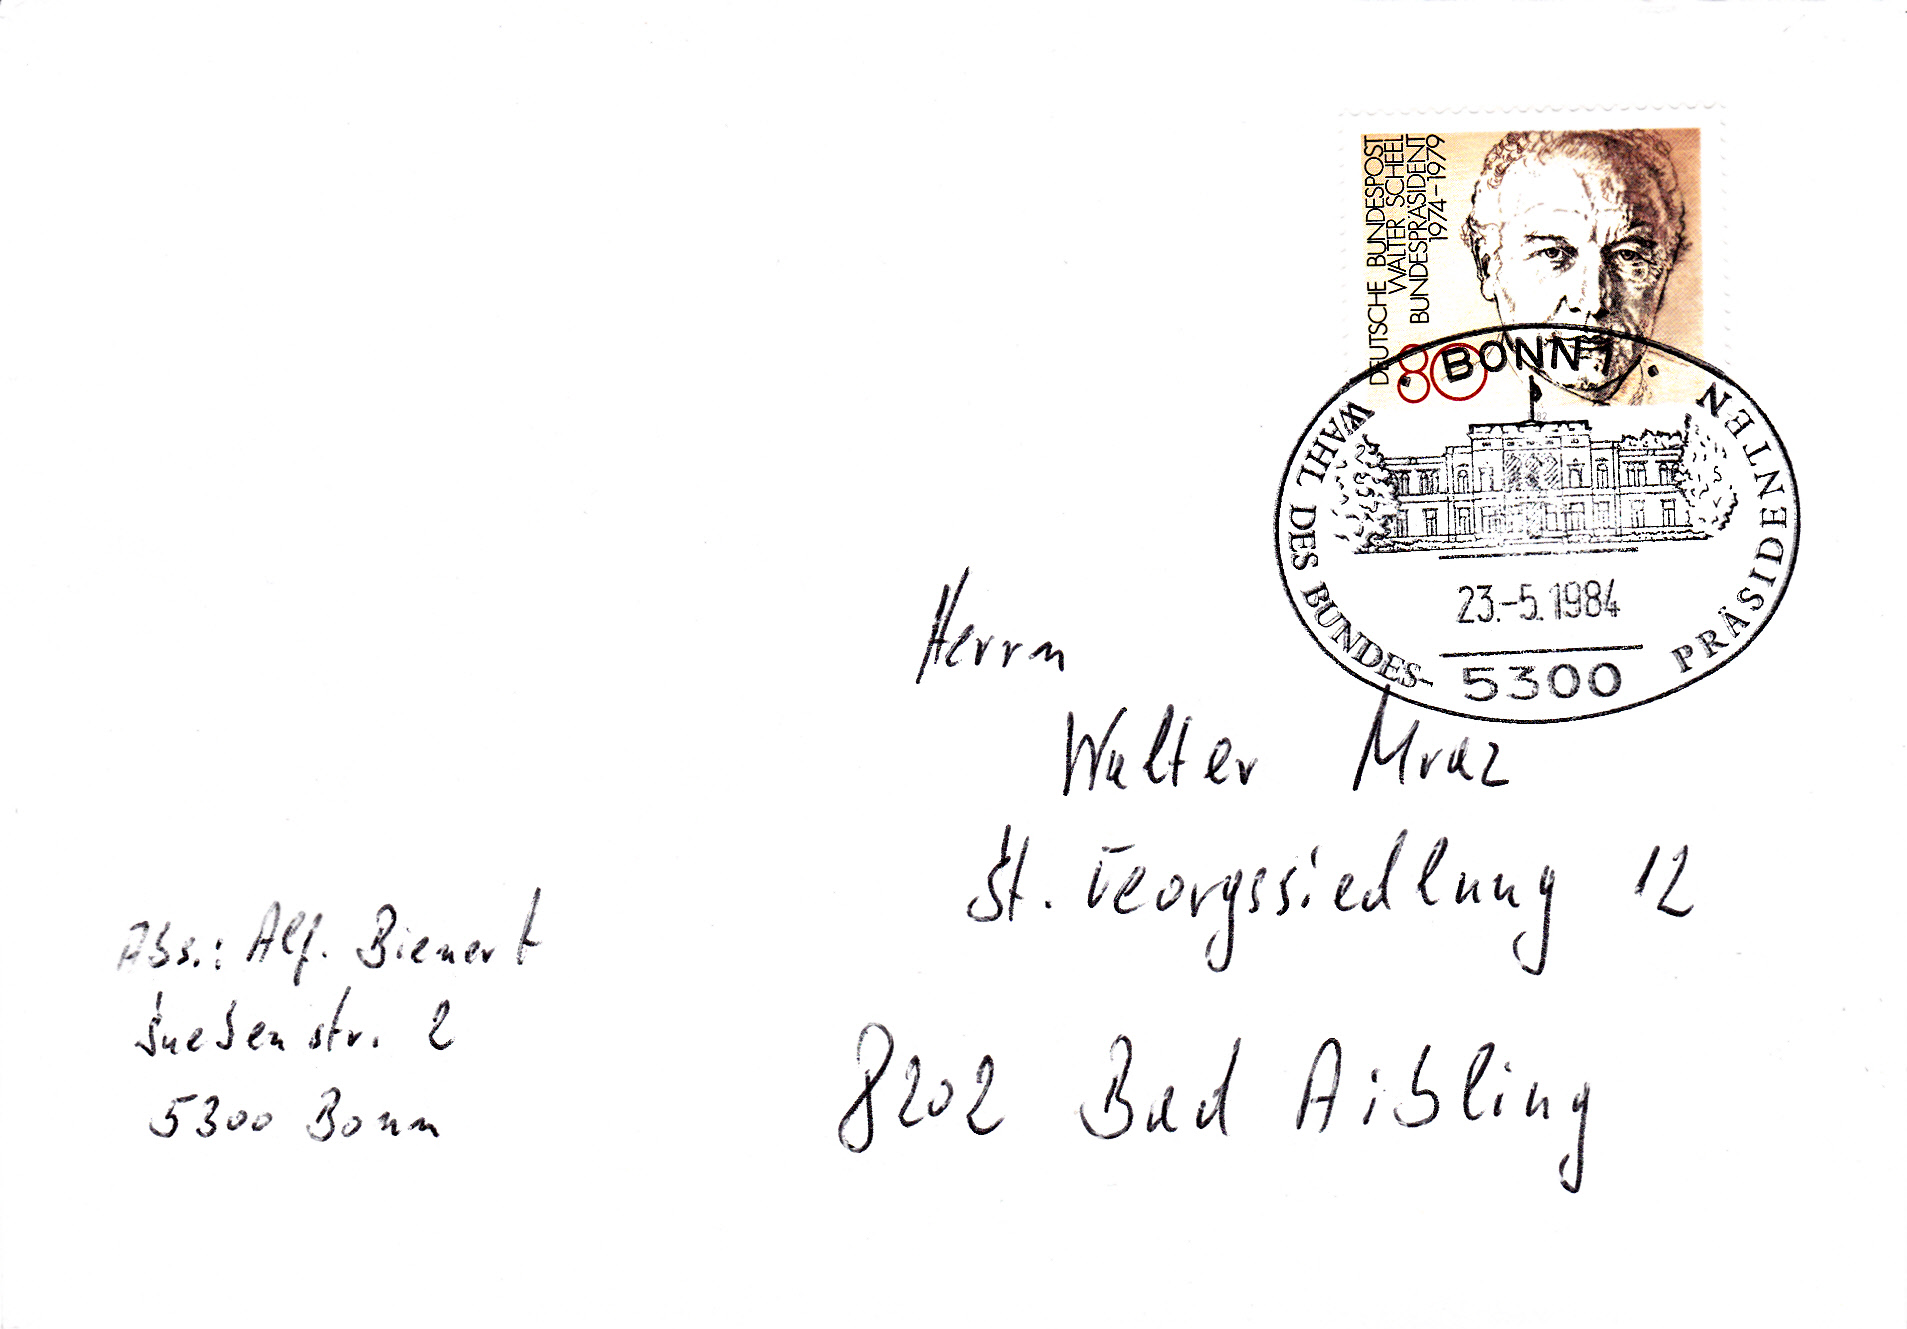 DEUTSCHE BUNDESPOST
WALTER SCHEEL
BUNDESPRÄSIDENT
1974–1979
80
BONN 1
WAHL DES BUNDES-
PRÄSIDENTEN
23.-5.1984
5300
Herrn
Walter Mraz
St. Georgssiedlung 12
8202 Bad Aibling
Abs.: Alf. Bienert
str. 2
5300 Bonn